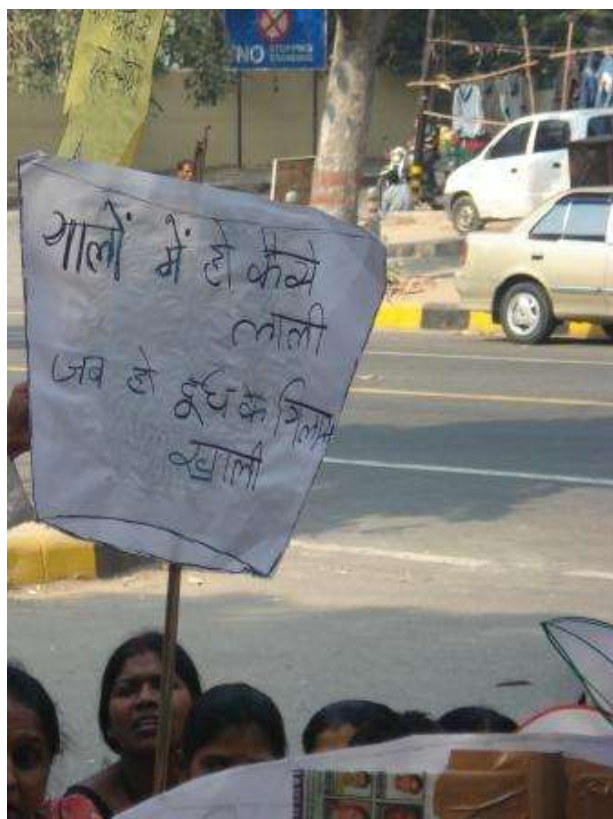 NO STOPPING
STANDING
गालों में हो कैसे
लाली
जब हो दूध के गिलास
खाली